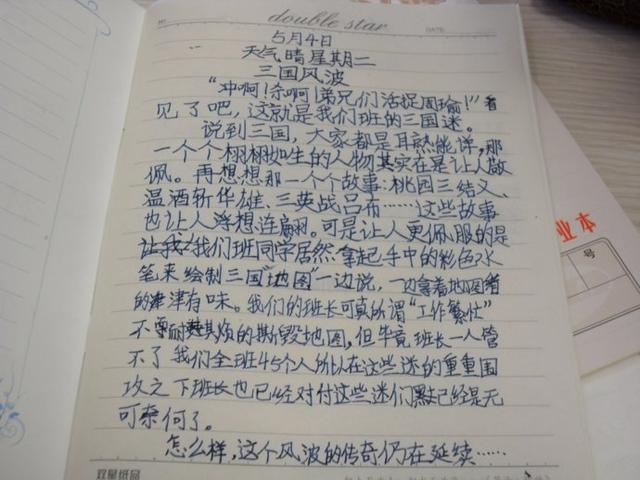 double star
DATE
5月4日
天气晴星期二
三国风波
"冲啊!杀啊!弟兄们活捉周瑜!"看
见了吧,这就是我们班的三国迷。
说到三国,大家都是耳熟能详,那
一个个栩栩如生的人物其实在是让人敬
佩。再想想那一个个故事:桃园三结义、
温酒斩华雄、三英战吕布……这些故事
也让人浮想连翩。可是让人更佩服的是
我们班同学居然拿起手中的彩色水
笔来绘制三国"地图"一边说,一边拿着地图看
的津津有味。我们的班长可真所谓"工作繁忙"
不耐其烦的撕毁地图,但毕竟班长一人管
不了我们全班45个人所以在这些迷的重重围
攻之下班长也已经对付这些迷们已经是无
可奈何了。
怎么样,这个风波的传奇仍在延续……
双星纸品
业本
号